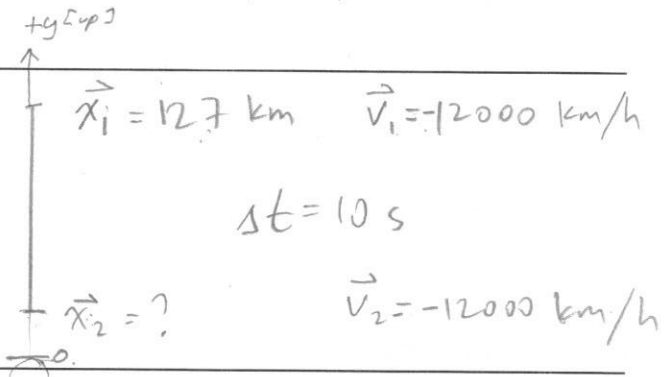 +y [up]
x⃗₁ = 127 km v⃗₁ = -12000 km/h
Δt = 10 s
x⃗₂ = ? v⃗₂ = -12000 km/h
0.